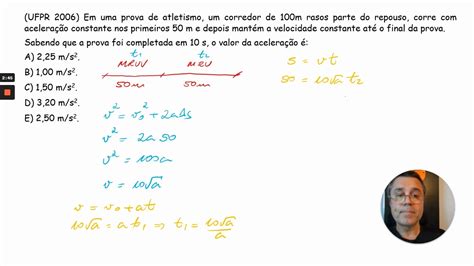 (UFPR 2006) Em uma prova de atletismo, um corredor de 100m rasos parte do repouso, corre com
aceleração constante nos primeiros 50 m e depois mantém a velocidade constante até o final da prova.
Sabendo que a prova foi completada em 10 s, o valor da aceleração é:
A) 2,25 m/s².
B) 1,00 m/s².
C) 1,50 m/s².
D) 3,20 m/s².
E) 2,50 m/s².
t₁ t₂
MRUV MRU
50m 50m
v² = v₀² + 2aΔs
v² = 2a50
v² = 100a
v = 10√a
v = v₀ + at
10√a = a t₁ ⇒ t₁ = 10√a/a
s = vt
50 = 10√a t₂